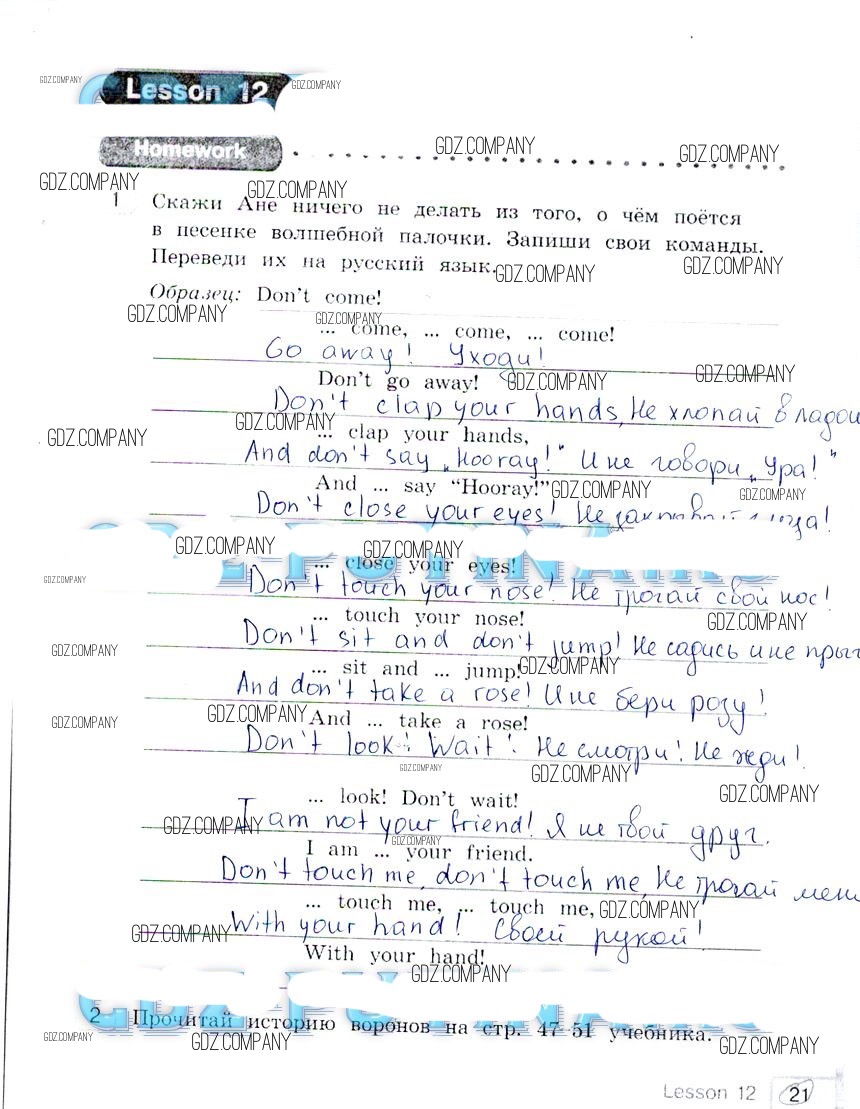 GDZ.COMPANY
Lesson 12
GDZ.COMPANY
Homework
GDZ.COMPANY
GDZ.COMPANY
GDZ.COMPANY
GDZ.COMPANY
1 Скажи Ане ничего не делать из того, о чём поётся
в песенке волшебной палочки. Запиши свои команды.
Переведи их на русский язык.
GDZ.COMPANY
GDZ.COMPANY
Образец: Don't come!
GDZ.COMPANY
GDZ.COMPANY
... come, ... come, ... come!
Go away! Уходи!
Don't go away!
GDZ.COMPANY
GDZ.COMPANY
Don't clap your hands, Не хлопай в ладо
GDZ.COMPANY
GDZ.COMPANY
... clap your hands,
And don't say „Hooray!" И не говори „Ура!"
And ... say "Hooray!"
GDZ.COMPANY
GDZ.COMPANY
Don't close your eyes! Не
GDZ.COMPANY
GDZ.COMPANY
... close your eyes!
GDZ.COMPANY
Don't touch your nose! Не трогай свой нос!
... touch your nose!
GDZ.COMPANY
Don't sit and don't jump! Не садись и не прыг
GDZ.COMPANY
... sit and ... jump!
GDZ.COMPANY
And don't take a rose! И не бери розу!
GDZ.COMPANY
GDZ.COMPANY
And ... take a rose!
Don't look! Wait! Не смотри! Не жди!
GDZ.COMPANY
GDZ.COMPANY
GDZ.COMPANY
... look! Don't wait!
I am not your friend! Я не твой друг.
GDZ.COMPANY
GDZ.COMPANY
I am ... your friend.
Don't touch me, don't touch me, Не трогай мен
... touch me, ... touch me,
GDZ.COMPANY
With your hand! Своей рукой!
GDZ.COMPANY
With your hand!
GDZ.COMPANY
2 Прочитай историю воронов на стр. 47–51 учебника.
GDZ.COMPANY
GDZ.COMPANY
GDZ.COMPANY
Lesson 12 21